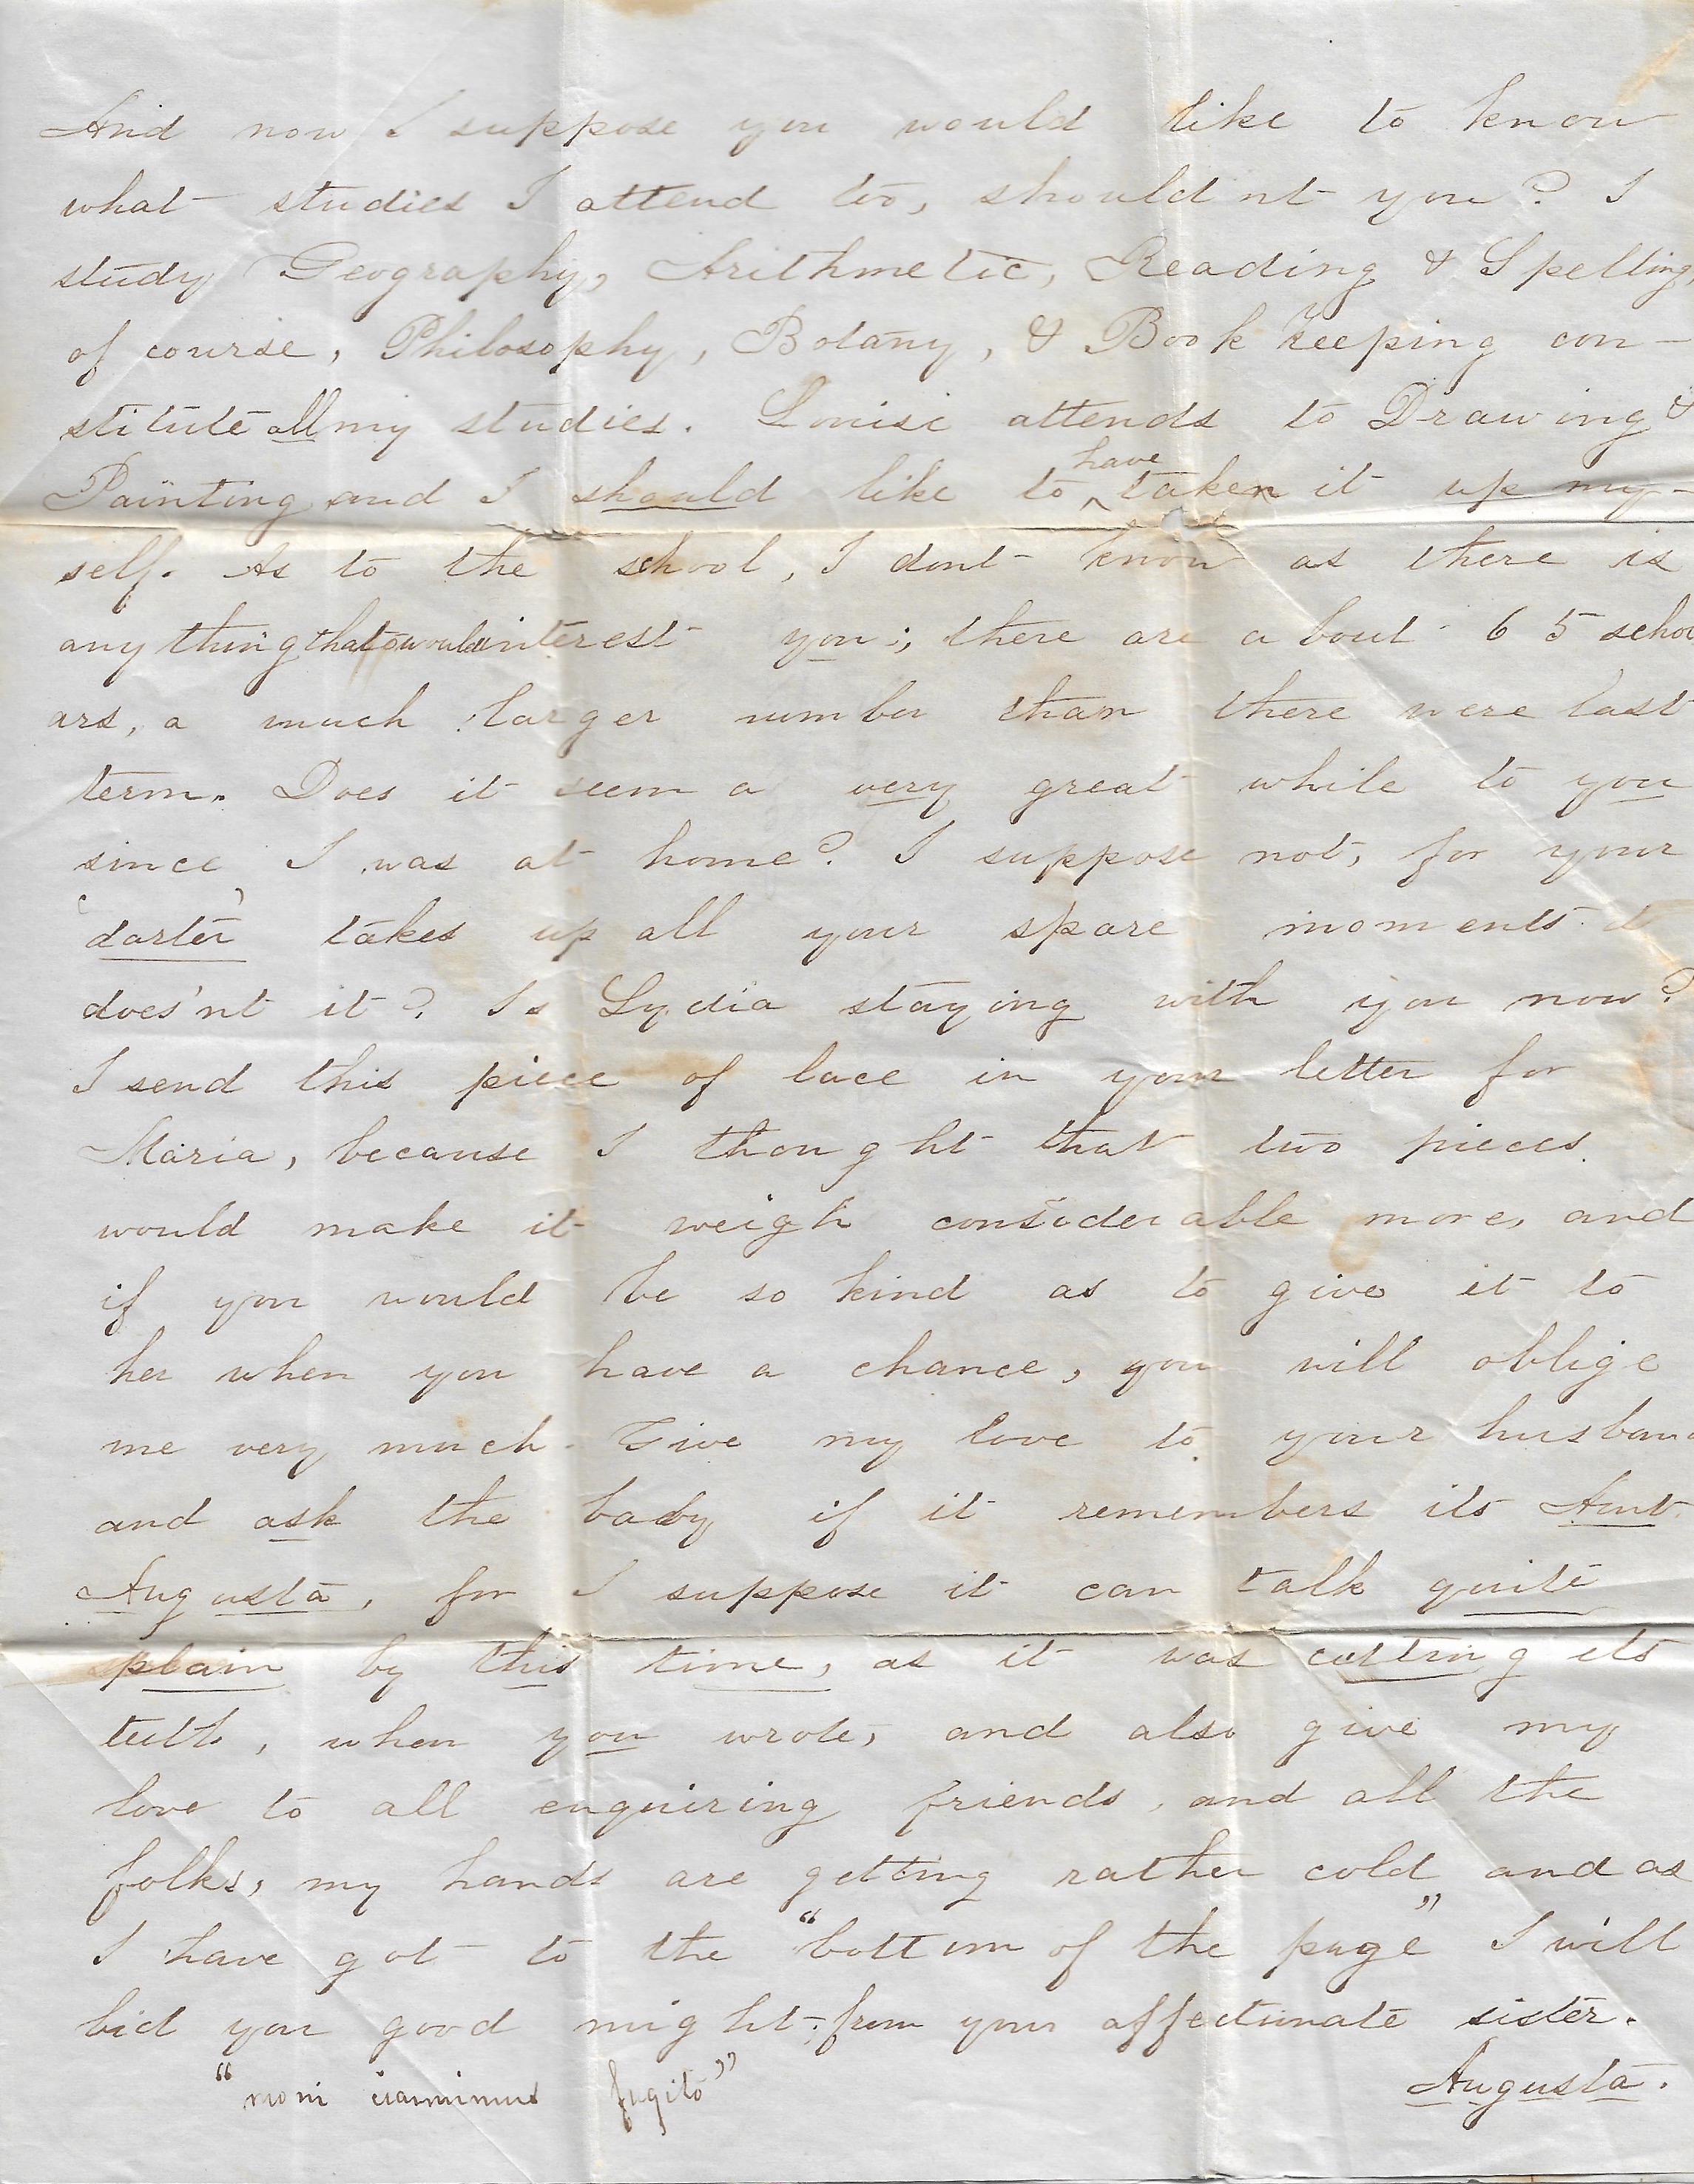 And now I suppose you would like to know
what studies I attend too, should nt you? I
study Geography, Arithmetic, Reading & Spelling,
of course, Philosophy, Botany, & Book keeping con-
stitute all my studies. Louise attends to Drawing &
Painting and I should like to have taken it up my-
self. As to the school, I dont know as there is
any thing that would interest you;, there are about 65 schol
ars, a much larger number than there were last
term. Does it seem a very great while to you
since I was at home? I suppose not, for your
'darter' takes up all your spare moments
does'nt it? Is Lydia staying with you now?
I send this piece of lace in your letter for
Maria, because I thought that two pieces
would make it weigh considerable more, and
if you would be so kind as to give it to
her when you have a chance, you will oblige
me very much. Give my love to your husband
and ask the baby if it remembers its Aunt
Augusta, for I suppose it can talk quite
plain by this time, as it was cutting its
teeth, when you wrote, and also give my
love to all enquiring friends, and all the
folks, my hands are getting rather cold and as
I have got to the "bottom of the page" I will
bid you good night, from your affectionate sister.
Augusta.
fugito"